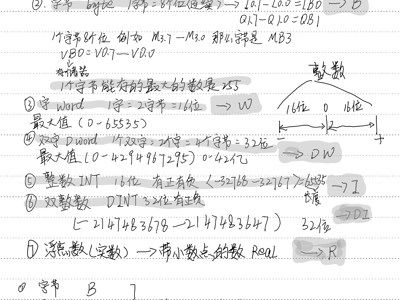 ②. 字节 byte 1字节=8个位(但块) → I0.7-I0.0=IB0 → B
Q1.7-Q1.0=QB1
1个字节8个位 例如 M3.7-M3.0 那么字节是 MB3
VB0=V0.7-V0.0
存储器
1个字节能存的最大的数是255
③ 字 word 1字=2字节=16位 → W
最大值 (0-65535)
④ 双字 Dword 1个双字=2个字=4个字节=32位
最大值 (0-4294967295) 0-42亿 → DW
⑤ 整数 INT 16位 有正有负 (-32768-32767)=65535 → I
长度
⑥ 双整数 DINT 32位有正负 → DI
(-2147483678-2147483647) 32位
⑦ 浮点数(实数) → 带小数点的数 Real → R
字节 B
整数
16位 0 16位
- +